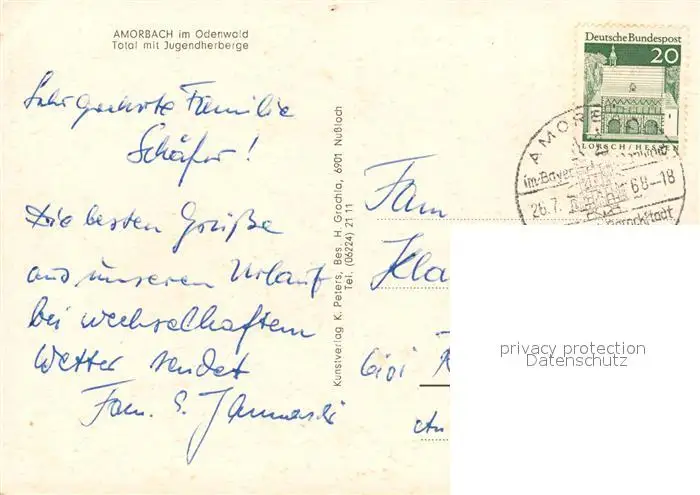 AMORBACH im Odenwald
Total mit Jugendherberge
Sehr geehrte Familie
Schäfer!
Die besten Grüße
aus unserem Urlaub
bei wechselhaftem
Wetter sendet
Fam. E.
Kunstverlag K. Peters, Bes. H. Grochla, 6901 Nußloch
Tel. (06224) 21 11
Deutsche Bundespost
20
LORSCH/HESSEN
AMOR
im Bayer
26.7. 68-18
Barockstadt
Fam
Kla
An
privacy protection
Datenschutz